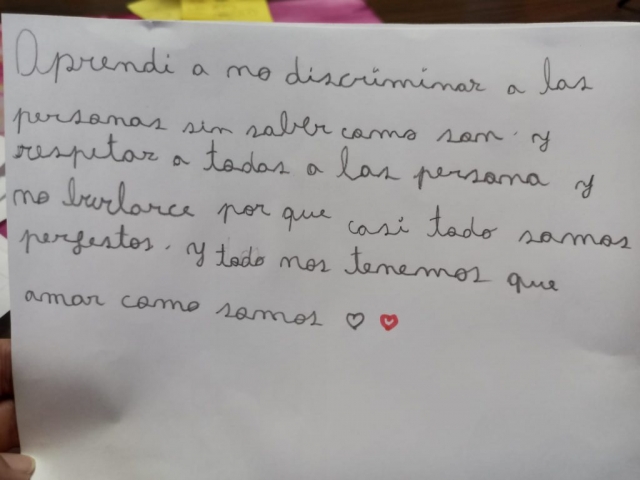 Aprendi a no discriminar a las
personas sin saber como son. y
respetar a todas a las persona y
no burlarce por que casi todo somos
perfestos. y todo nos tenemos que
amar como somos